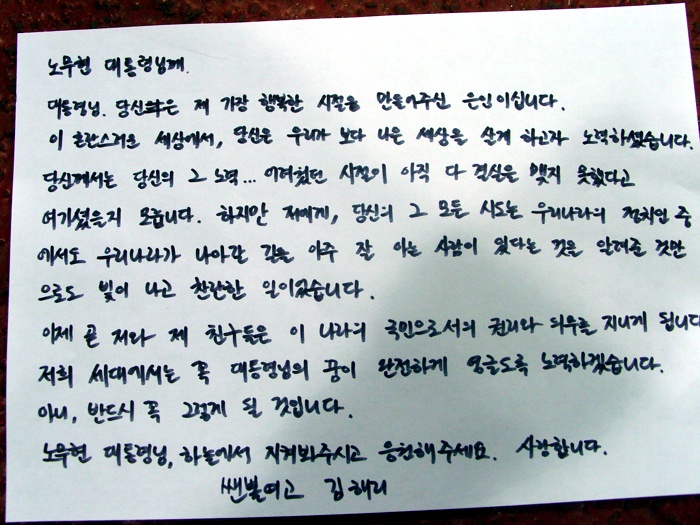 노무현 대통령님께.
대통령님. 당신은 제 가장 행복한 시절을 만들어주신 은인이십니다.
이 혼란스러운 세상에서, 당신은 우리가 보다 나은 세상을 살게 하고자 노력하셨습니다.
당신께서는 당신의 그 노력... 어려웠던 시절이 아직 다 결실을 맺지 못했다고
여기셨을지 모릅니다. 하지만 저에게, 당신의 그 모든 시도는 우리나라의 정치인 중
에서도 우리나라가 나아갈 길을 아주 잘 아는 사람이 있다는 것을 알려준 것만
으로도 빛이 나고 찬란한 일이었습니다.
이제 곧 저와 제 친구들은 이 나라의 국민으로서의 권리와 의무를 지니게 됩니다
저희 세대에서는 꼭 대통령님의 꿈이 완전하게 영글도록 노력하겠습니다.
아니, 반드시 꼭 그렇게 될 것입니다.
노무현 대통령님, 하늘에서 지켜봐주시고 응원해주세요. 사랑합니다.
샛별여고 김해리